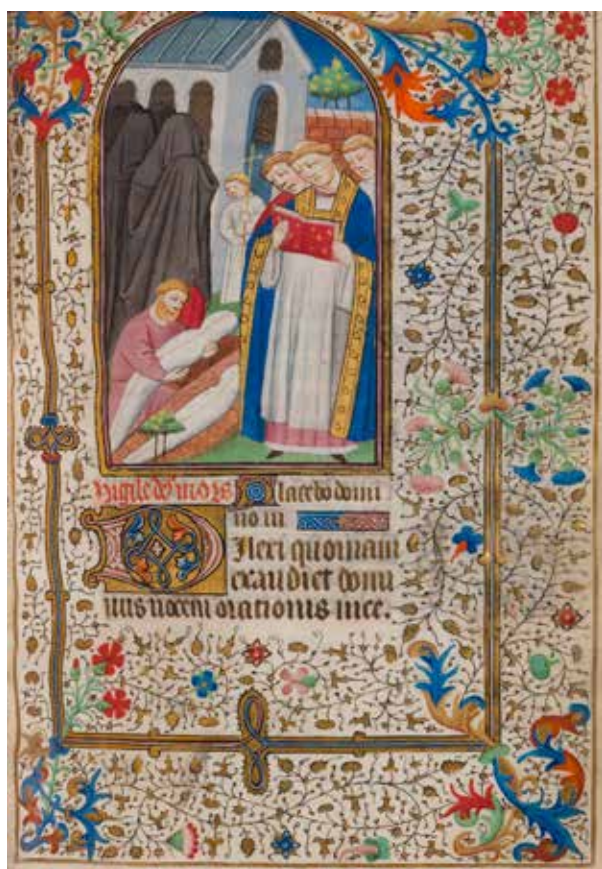 Vigile des mors Placebo domi
no in
DIlexi quoniam
exaudiet domi
nus uocem orationis mee.